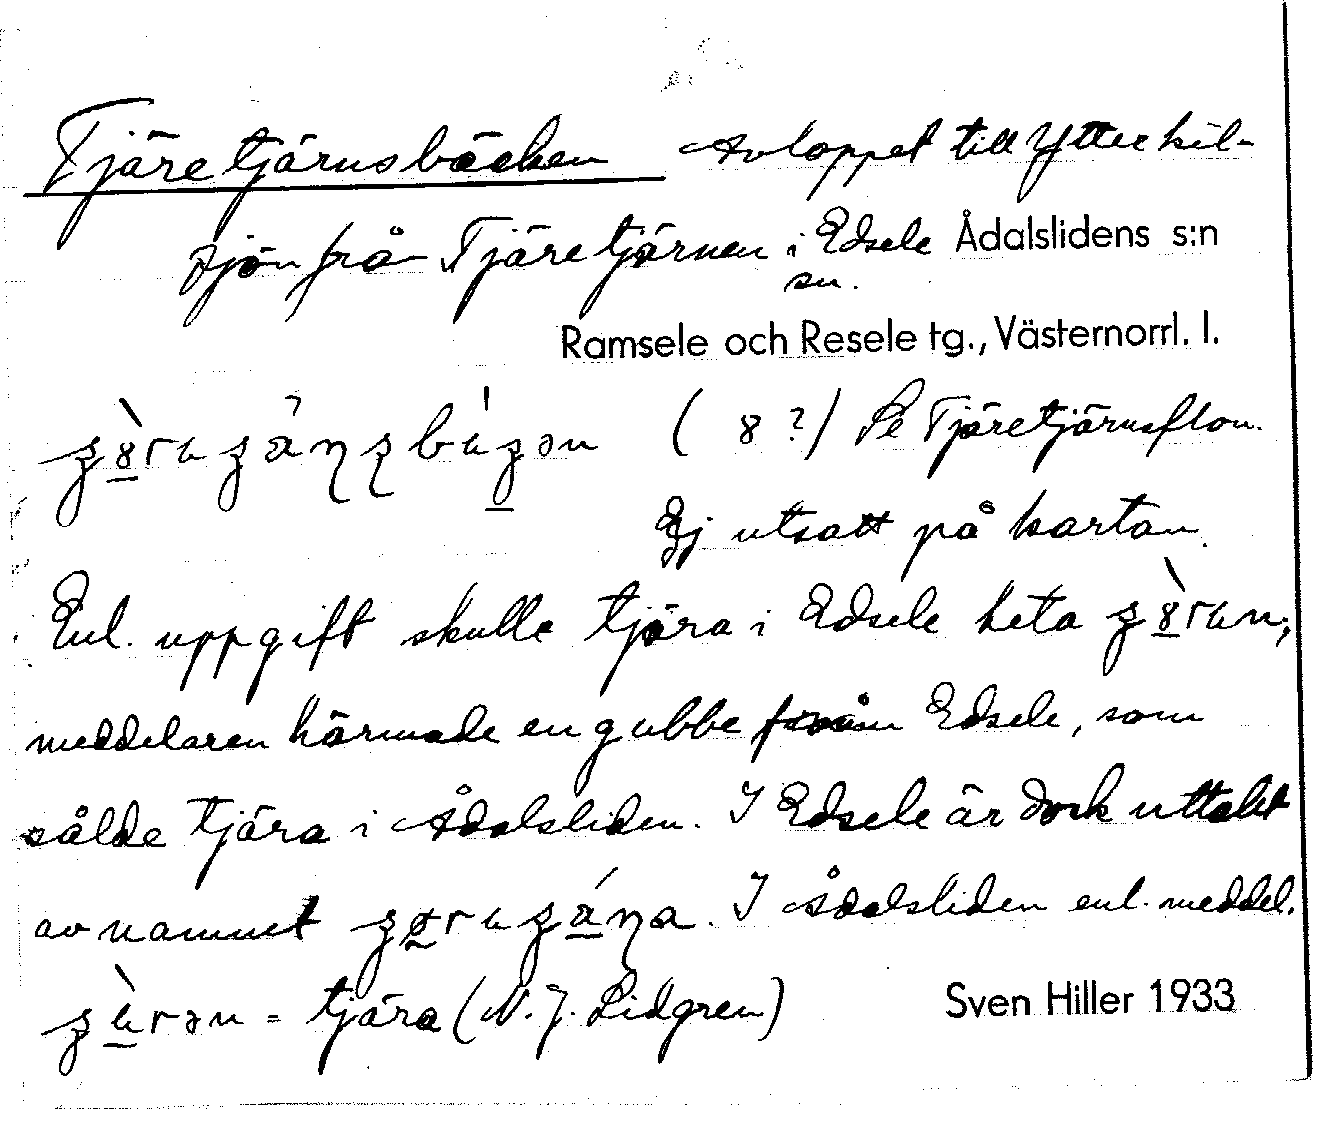 Tjäretjärnsbäcken Avloppet till Ytterkil-
sjön från Tjäretjärnen i Edsele Ådalslidens s:n
sn.
Ramsele och Resele tg., Västernorrl. l.
( 8 ?) Se Tjäretjärnsflon.
Ej utsatt på kartan.
Enl. uppgift skulle tjära i Edsele heta
meddelaren härmade en gubbe från Edsele, som
sålde tjära i Ådalsliden. I Edsele är dock uttalet
av namnet I Ådalsliden enl. meddel.
= tjära (N. J. Lidgren) Sven Hiller 1933